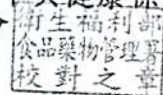 健康保
衛生福利部
食品藥物管理署
校對之章